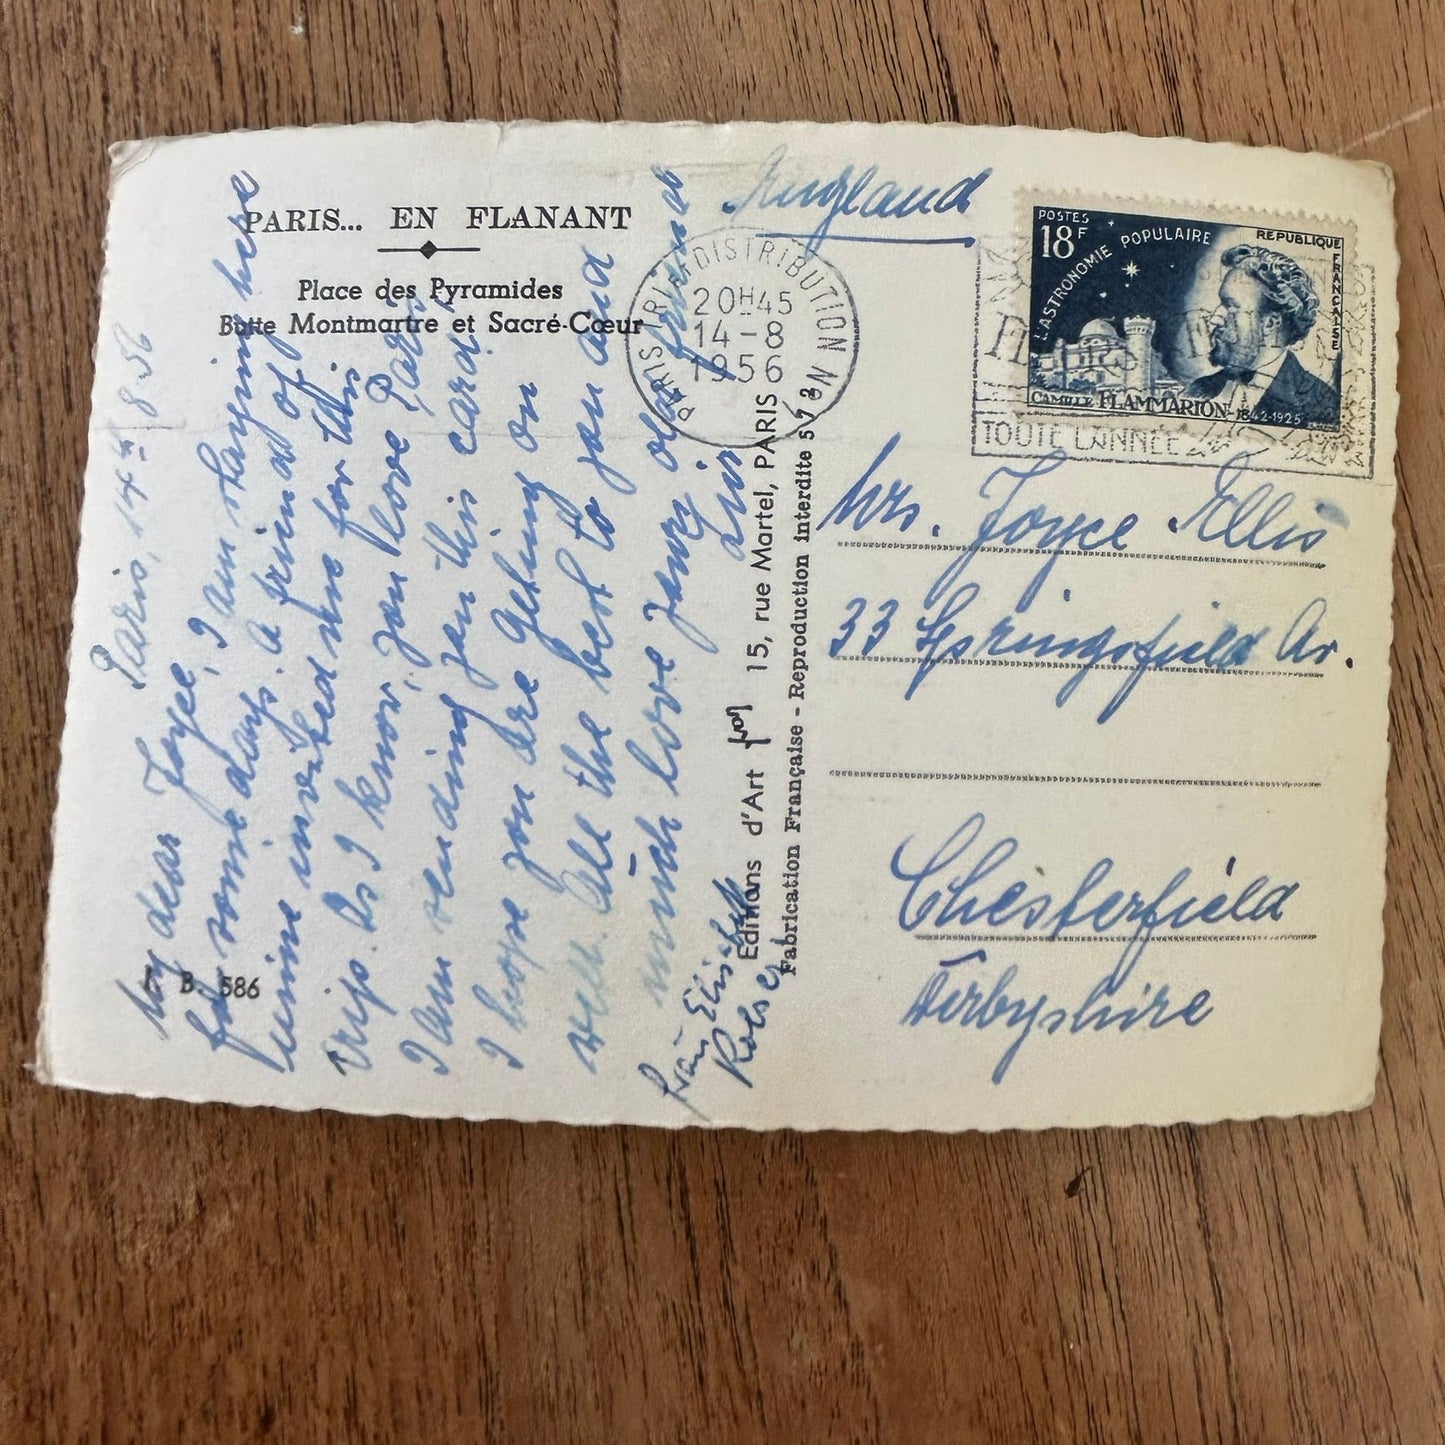 PARIS... EN FLANANT
Place des Pyramides
Butte Montmartre et Sacré-Cœur
B. 586
Paris, 14th 8.56
My dear Joyce, I am staying here
for some days. A friend of
mine invited me for this
trip. As I know, you love Paris
I am sending you this card.
I hope you are getting on
well. All the best to you and
much love Your old friend
from
Editions d'Art 15, rue Martel, PARIS
Fabrication Française - Reproduction interdite
PARIS DISTRIBUTION
20H45
14-8
1956
England
POSTES
18F
L'ASTRONOMIE POPULAIRE
REPUBLIQUE FRANÇAISE
CAMILLE FLAMMARION 1842-1925
TOUTE L'ANNÉE
Mrs. Joyce Ellis
33 Springfield Av.
Chesterfield
Derbyshire